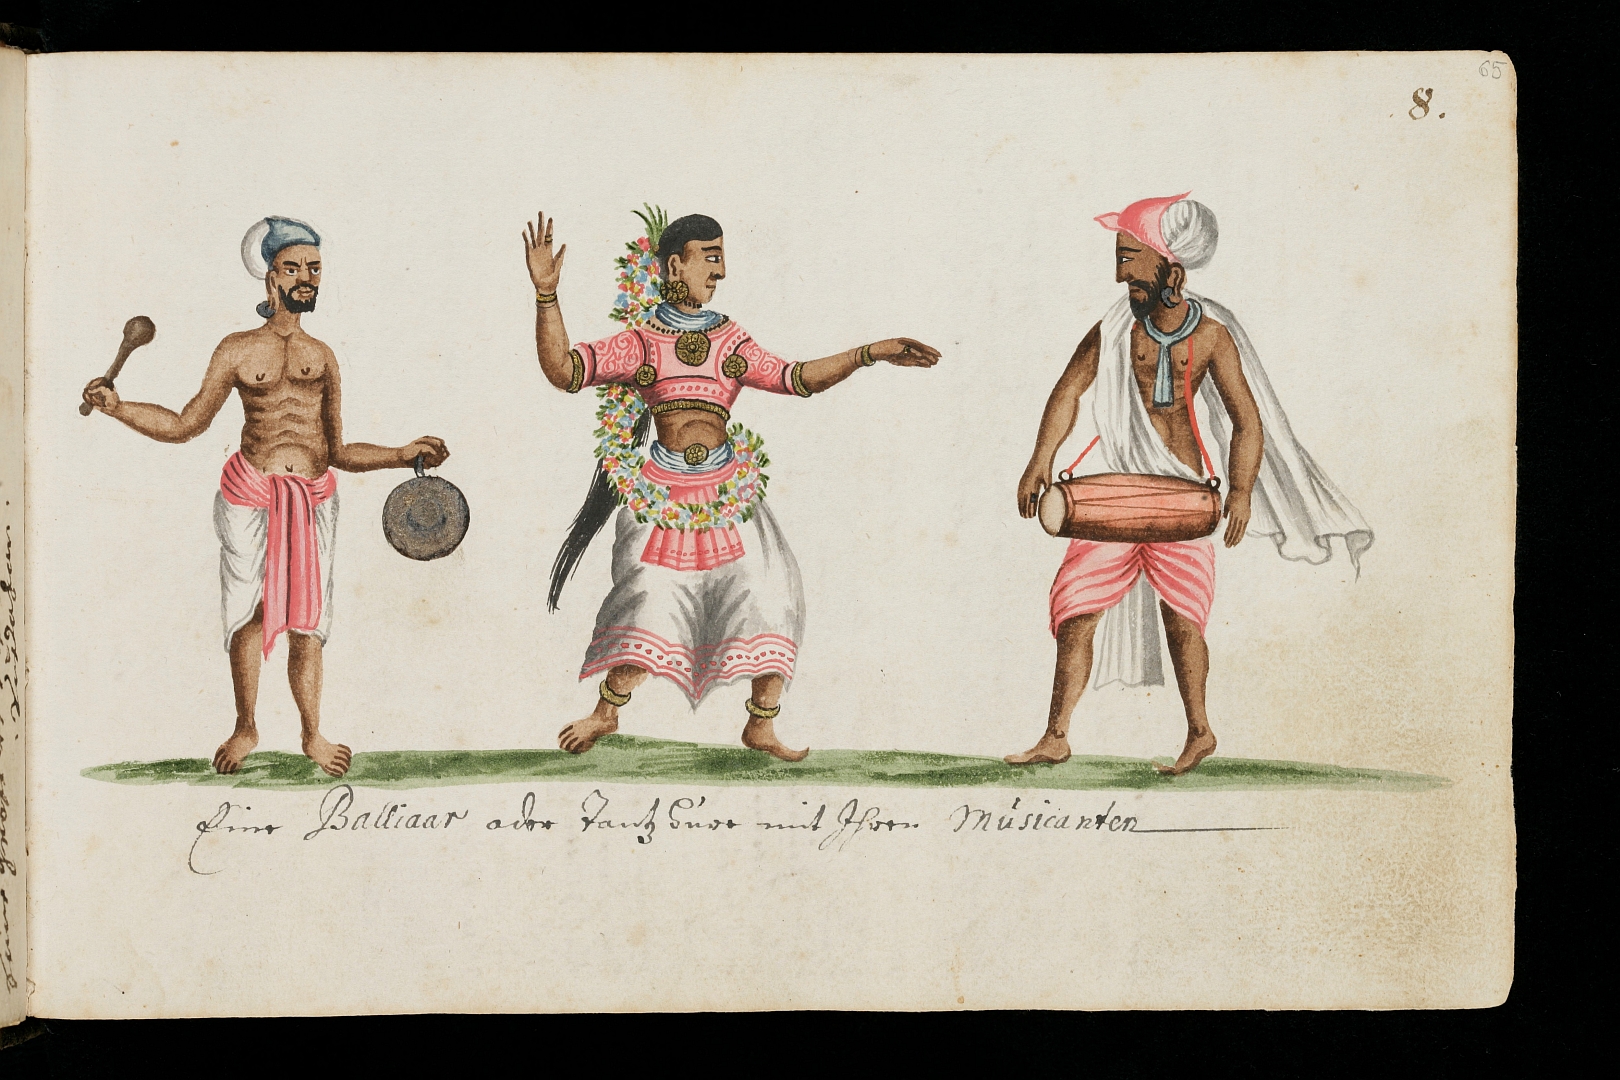 65
8.
Eine Balliaar oder Tantz Hure mit Ihren Müsicanten